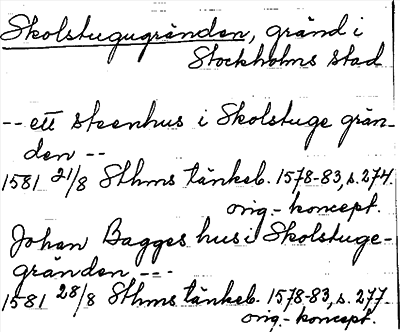 Skolstugugränden, gränd i
Stockholms stad
-- ett steenhus i Skolstuge grän-
den --
1581 21/8 Sthms tänkeb. 1578-83, s. 274.
orig.- koncept.
Johan Bagges hus i Skolstuge-
gränden ---
1581 28/8 Sthms tänkeb. 1578-83, s. 277.
orig.- koncept.